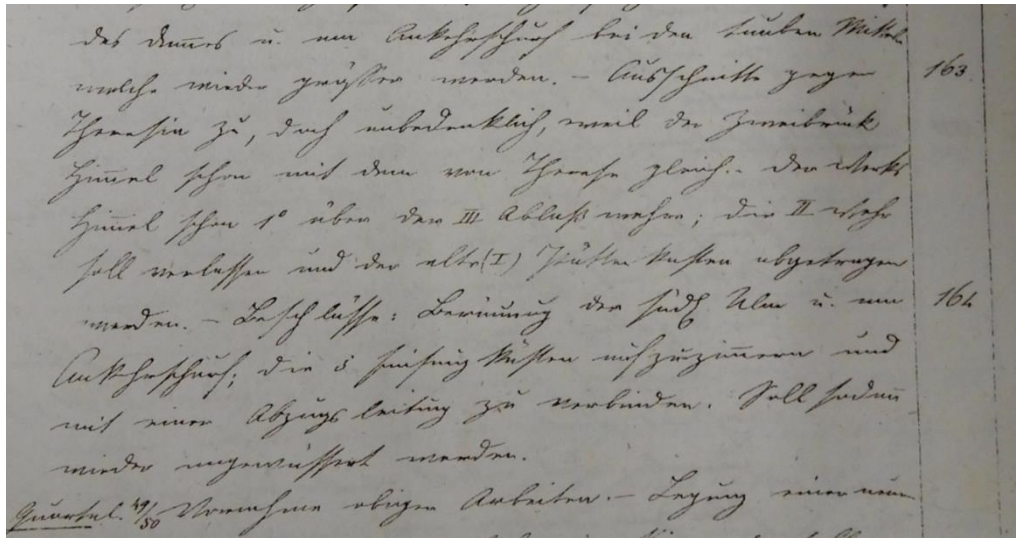 des Dammes u. am Ankehrschurf bei den tauben Mittel
welche wieder größer werden. – Ausschnitte gegen
163
Theresia zu, doch unbedenklich, weil der Zweibrück
Himmel schon mit dem von Therese gleich. – Der Werks
Himmel schon 1° über der III Ablaß wehre; die II Wehr
soll verlassen und der alte (I) Kasten abgetragen
werden. – Beschlüsse: Berinnung der südl Ulm u. am
164
Ankehrschurf; die Kästen aufzuzimmern und
mit einer Abzugs leitung zu verbinden. Soll sodann
wieder angewässert werden.
Quartal. 49/50 Vornahme obiger Arbeiten. – Legung einer neuen